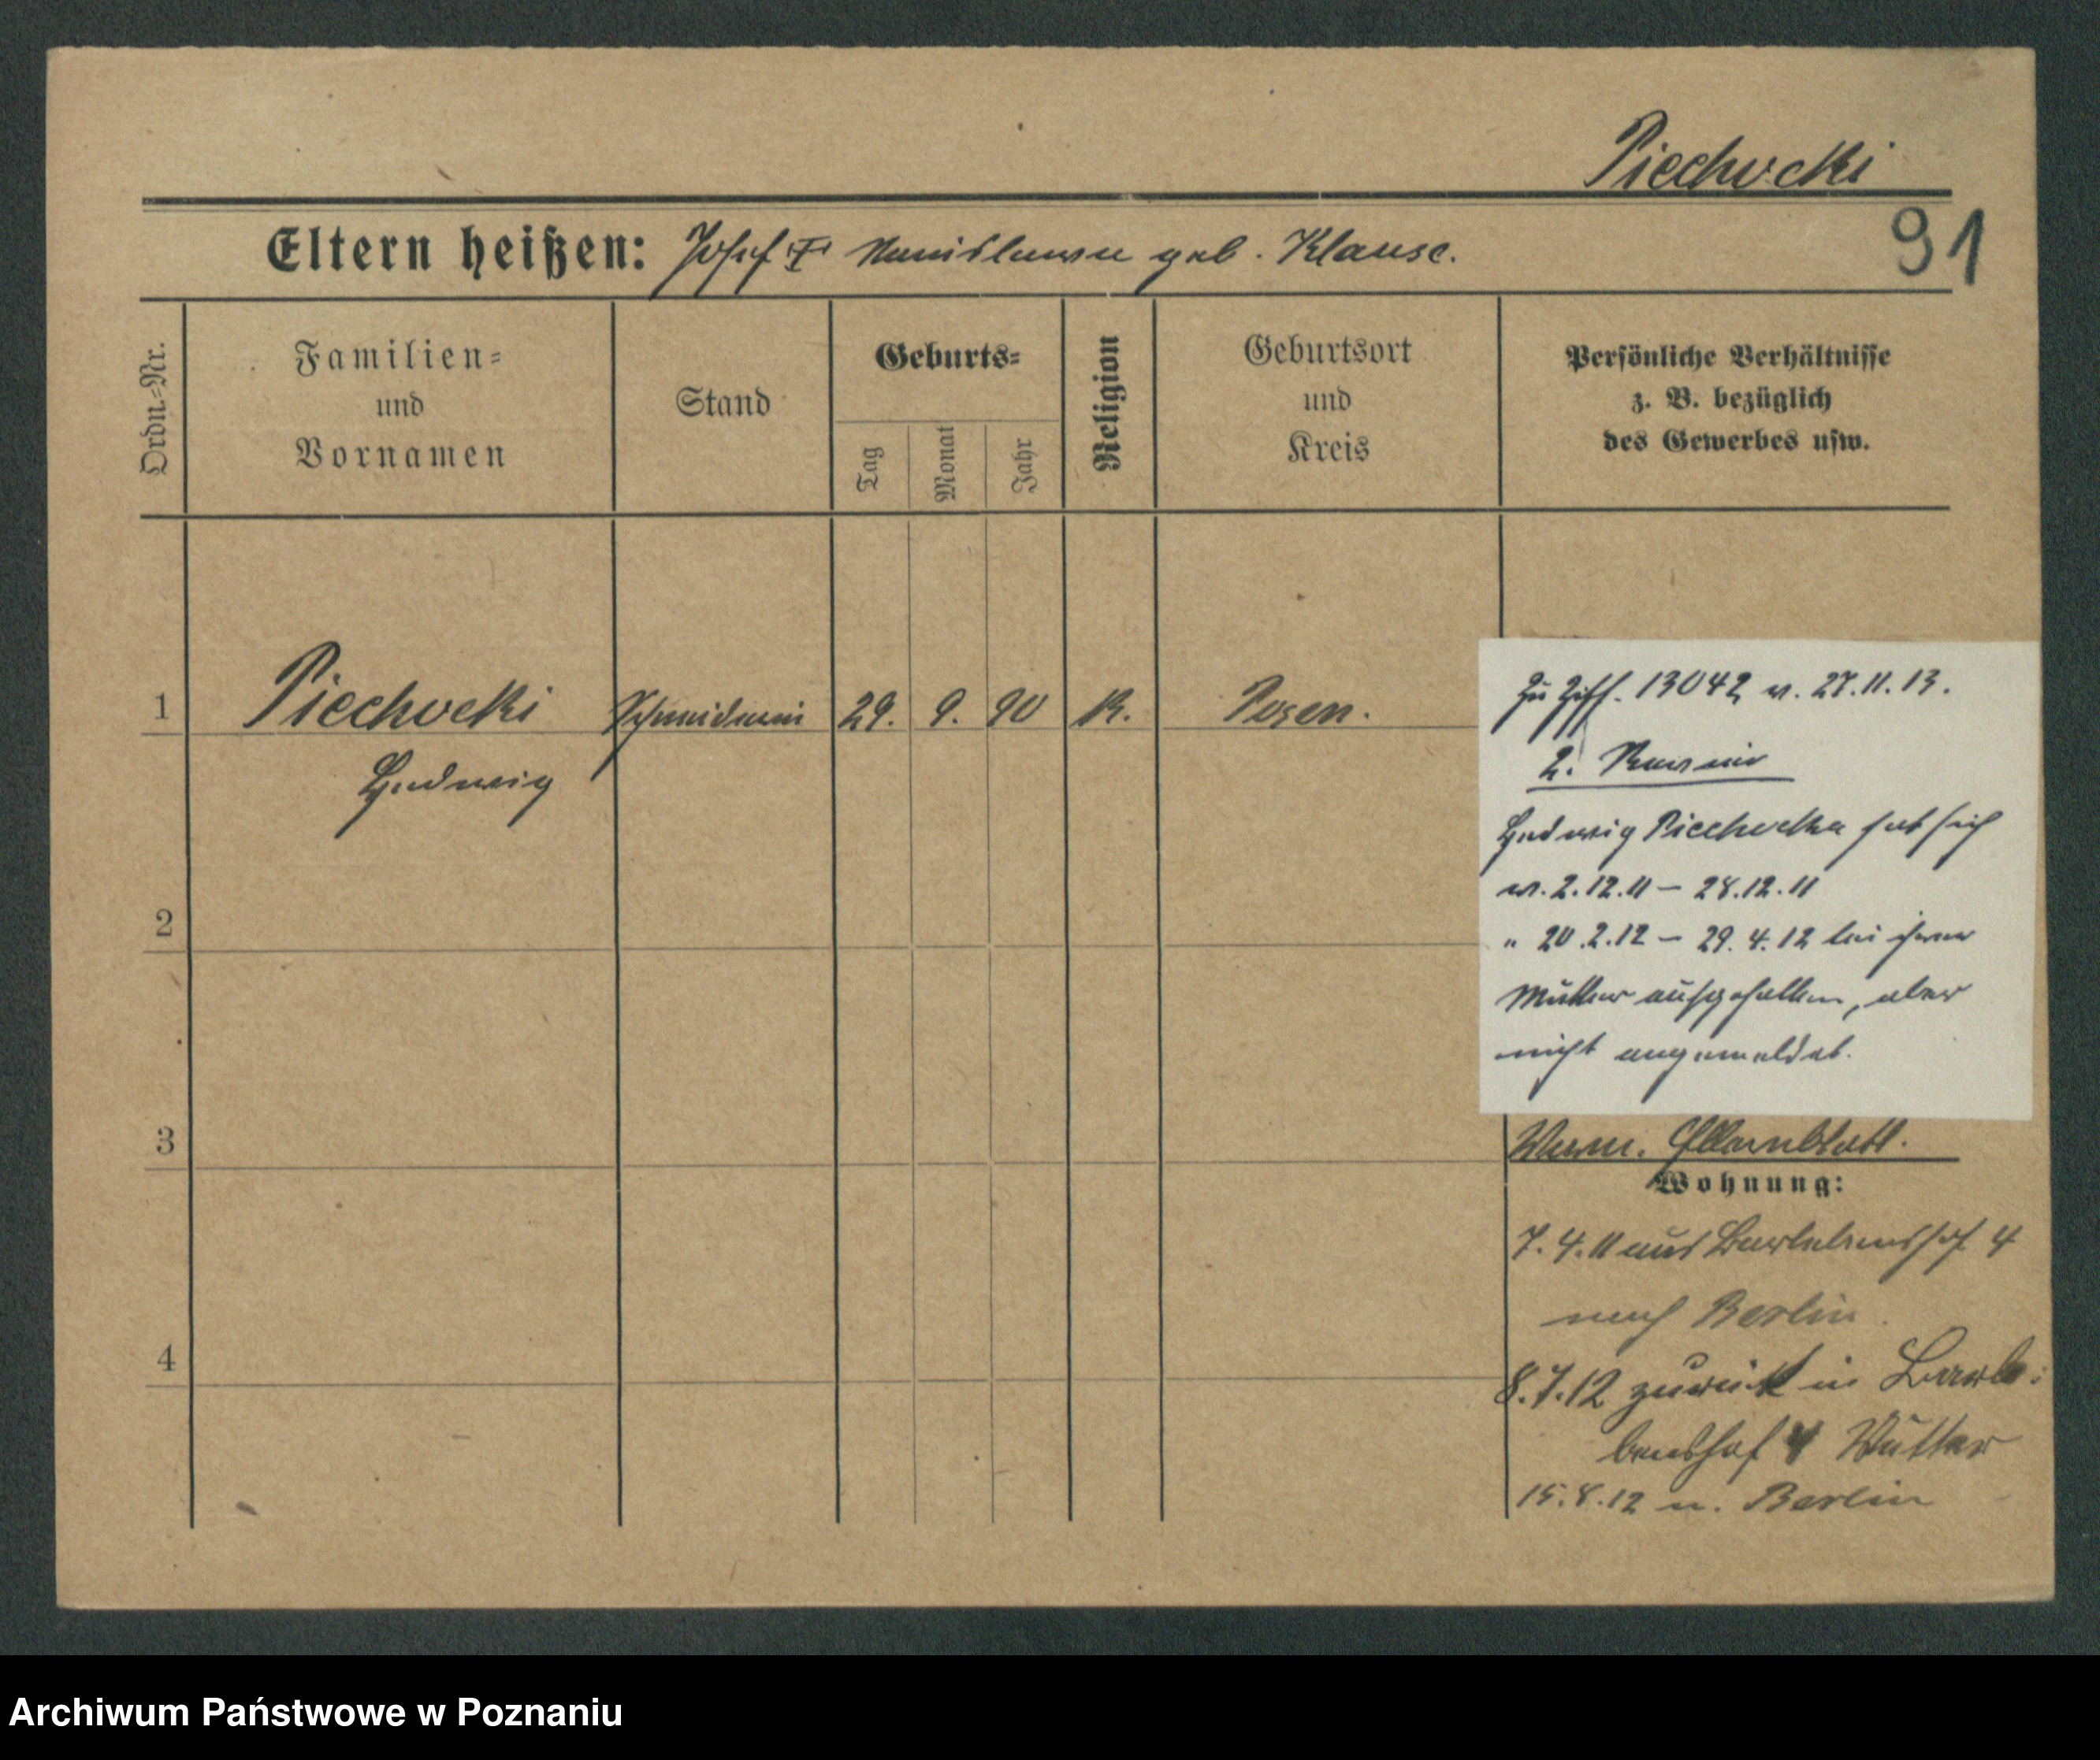 Piechocki
Eltern heißen: Josef † Stanislawa geb. Klause.
91
Ordn.=Nr.
Familien=
und
Vornamen
Stand
Geburts=
Tag
Monat
Jahr
Religion
Geburtsort
und
Kreis
Persönliche Verhältnisse
z. B. bezüglich
des Gewerbes usw.
1
Piechocki
Hedwig
Schneiderin
29. 9. 90
K.
Posen.
2
3
4
Zu Ziff. 13042 v. 27.11.13.
2. Revier
Hedwig Piechocka hat sich
v. 2.12.11 – 28.12.11
" 20.2.12 – 29.4.12 bei ihrer
Mutter aufgehalten, aber
nicht angemeldet.
Elternblatt.
Wohnung:
7.4.11 aus Bartelsenshof 4
nach Berlin.
8.7.12 zurück in
4 Mutter
15.8.12 n. Berlin
Archiwum Państwowe w Poznaniu